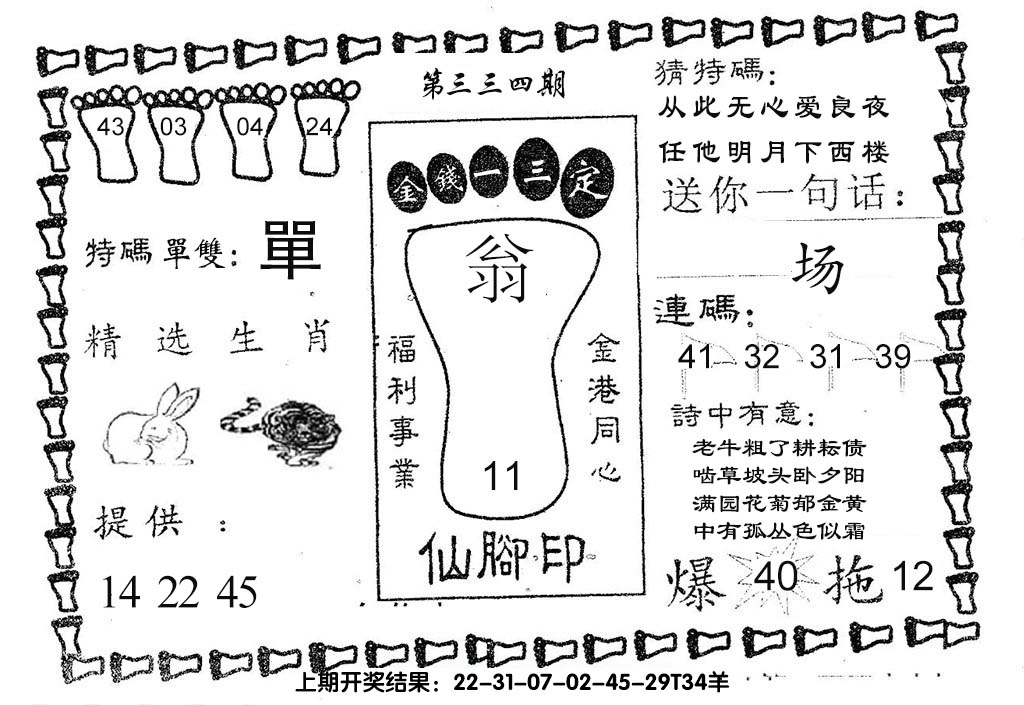 第三三四期
43 03 04 24
特碼單雙：單
精选生肖
提供：
14 22 45
金錢一三定
翁
福利事業
金港同心
11
仙腳印
猜特碼：
从此无心爱良夜
任他明月下西楼
送你一句话：
场
連碼：
41 32 31 39
詩中有意：
老牛粗了耕耘债
啮草坡头卧夕阳
满园花菊郁金黄
中有孤丛色似霜
爆 40 拖 12
上期开奖结果：22-31-07-02-45-29T34羊